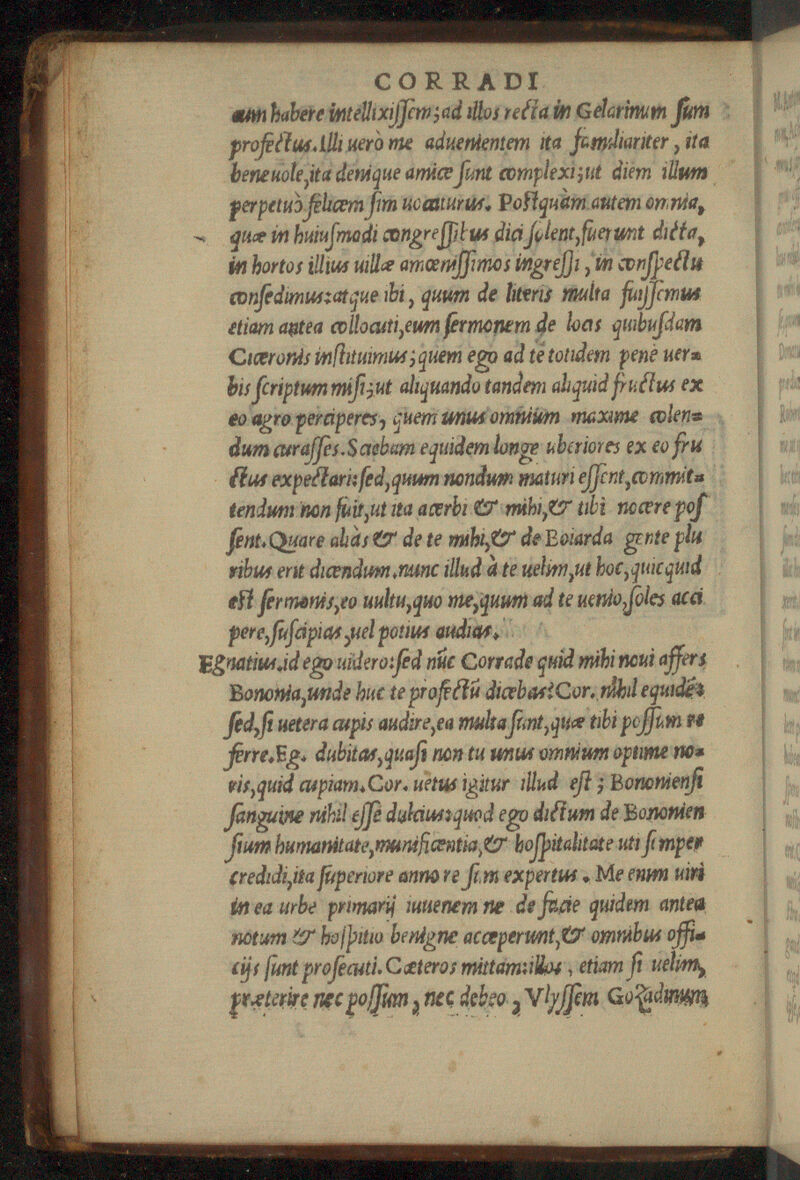 CORRADI
aum habere intellixissem; ad illos recta in Gelarinum sum
profectus. Illi uerò me aduenientem ita familiariter, ita
beneuole, ita denique amice sunt complexi; ut diem illum
perpetuò felicem sim uocaturus. Postquàm autem omnia,
quæ in huiusmodi congressibus dici solent, fuerunt dicta,
in hortos illius uillæ amœnissimos ingressi, in conspectu
consedimus: atque ibi, quum de literis multa fuissemus
etiam antea collocuti, eum sermonem de locis quibusdam
Ciceronis instituimus; quem ego ad te totidem penè uer=
bis scriptum misi; ut aliquando tandem aliquid fructus ex
eo agro perciperes, quem unus omnium maxime colen=
dum curasses. Sciebam equidem longe uberiores ex eo fru
ctus expectari: sed, quum nondum maturi essent, commit=
tendum non fuit, ut ita acerbi & mihi, & tibi nocere pos
sent. Quare aliàs & de te mihi, & de Boiarda gente plu
ribus erit dicendum. nunc illud à te uelim, ut hoc, quicquid
est sermonis, eo uultu, quo me, quum ad te uenio, soles acci
pere, suscipias, uel potius audias.
Egnatius. id ego uidero: sed nūc Corrade quid mihi noui affers
Bononia, unde huc te profectū dicebas? Cor. nihil equidē:
sed, si uetera cupis audire, ea multa sunt, quæ tibi possum re
ferre. Eg. dubitas, quasi non tu unus omnium optime no=
ris, quid cupiam. Cor. uetus igitur illud est; Bononiensi
sanguine nihil esse dulcius: quod ego dictum de Bononien
sium humanitate, munificentia, & hospitalitate uti semper
credidi, ita superiore anno re sum expertus. Me enim uiri
in ea urbe primarij iuuenem ne de facie quidem antea
notum & hospitio benigne acceperunt, & omnibus offi=
cijs sunt profecuti. Cæteros mittam: illos, etiam si uelim,
præterire nec possum, nec debeo, Vlyssem Gozadinum